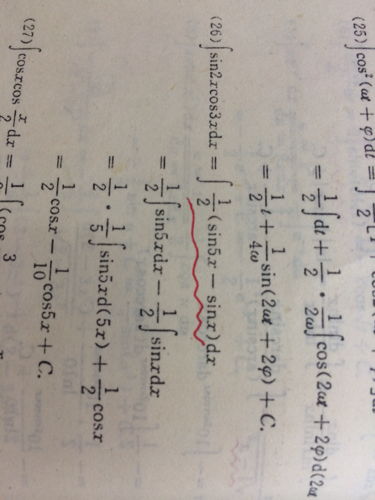 (25)∫cos²(ωt + φ)dt = ∫
= 1/2∫dt + 1/2 · 1/2ω∫cos(2ωt + 2φ)d(2ω
= 1/2t + 1/4ω sin(2ωt + 2φ) + C.
(26)∫sin2xcos3xdx = ∫1/2(sin5x − sinx)dx
= 1/2∫sin5xdx − 1/2∫sinxdx
= 1/2 · 1/5∫sin5xd(5x) + 1/2cosx
= 1/2cosx − 1/10cos5x + C.
(27)∫cosxcos x/2 dx = 1/2∫(cos 3